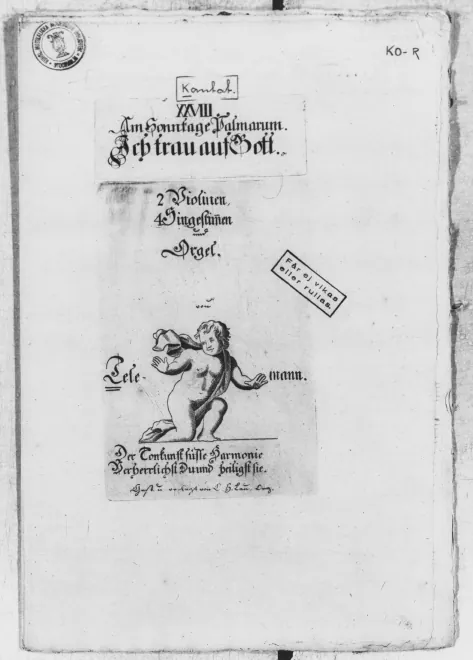 KO-R
Kantat.
XXVIII
Am Sonntage Palmarum.
Ich trau auf Gott.
2 Violinen,
4 Singestim̄en
und
Orgel.
Får ej vikas
eller rullas.
von
Tele-mann.
Der Tonkunst süsse Harmonie
Verherrlichst Du und heiligst sie.